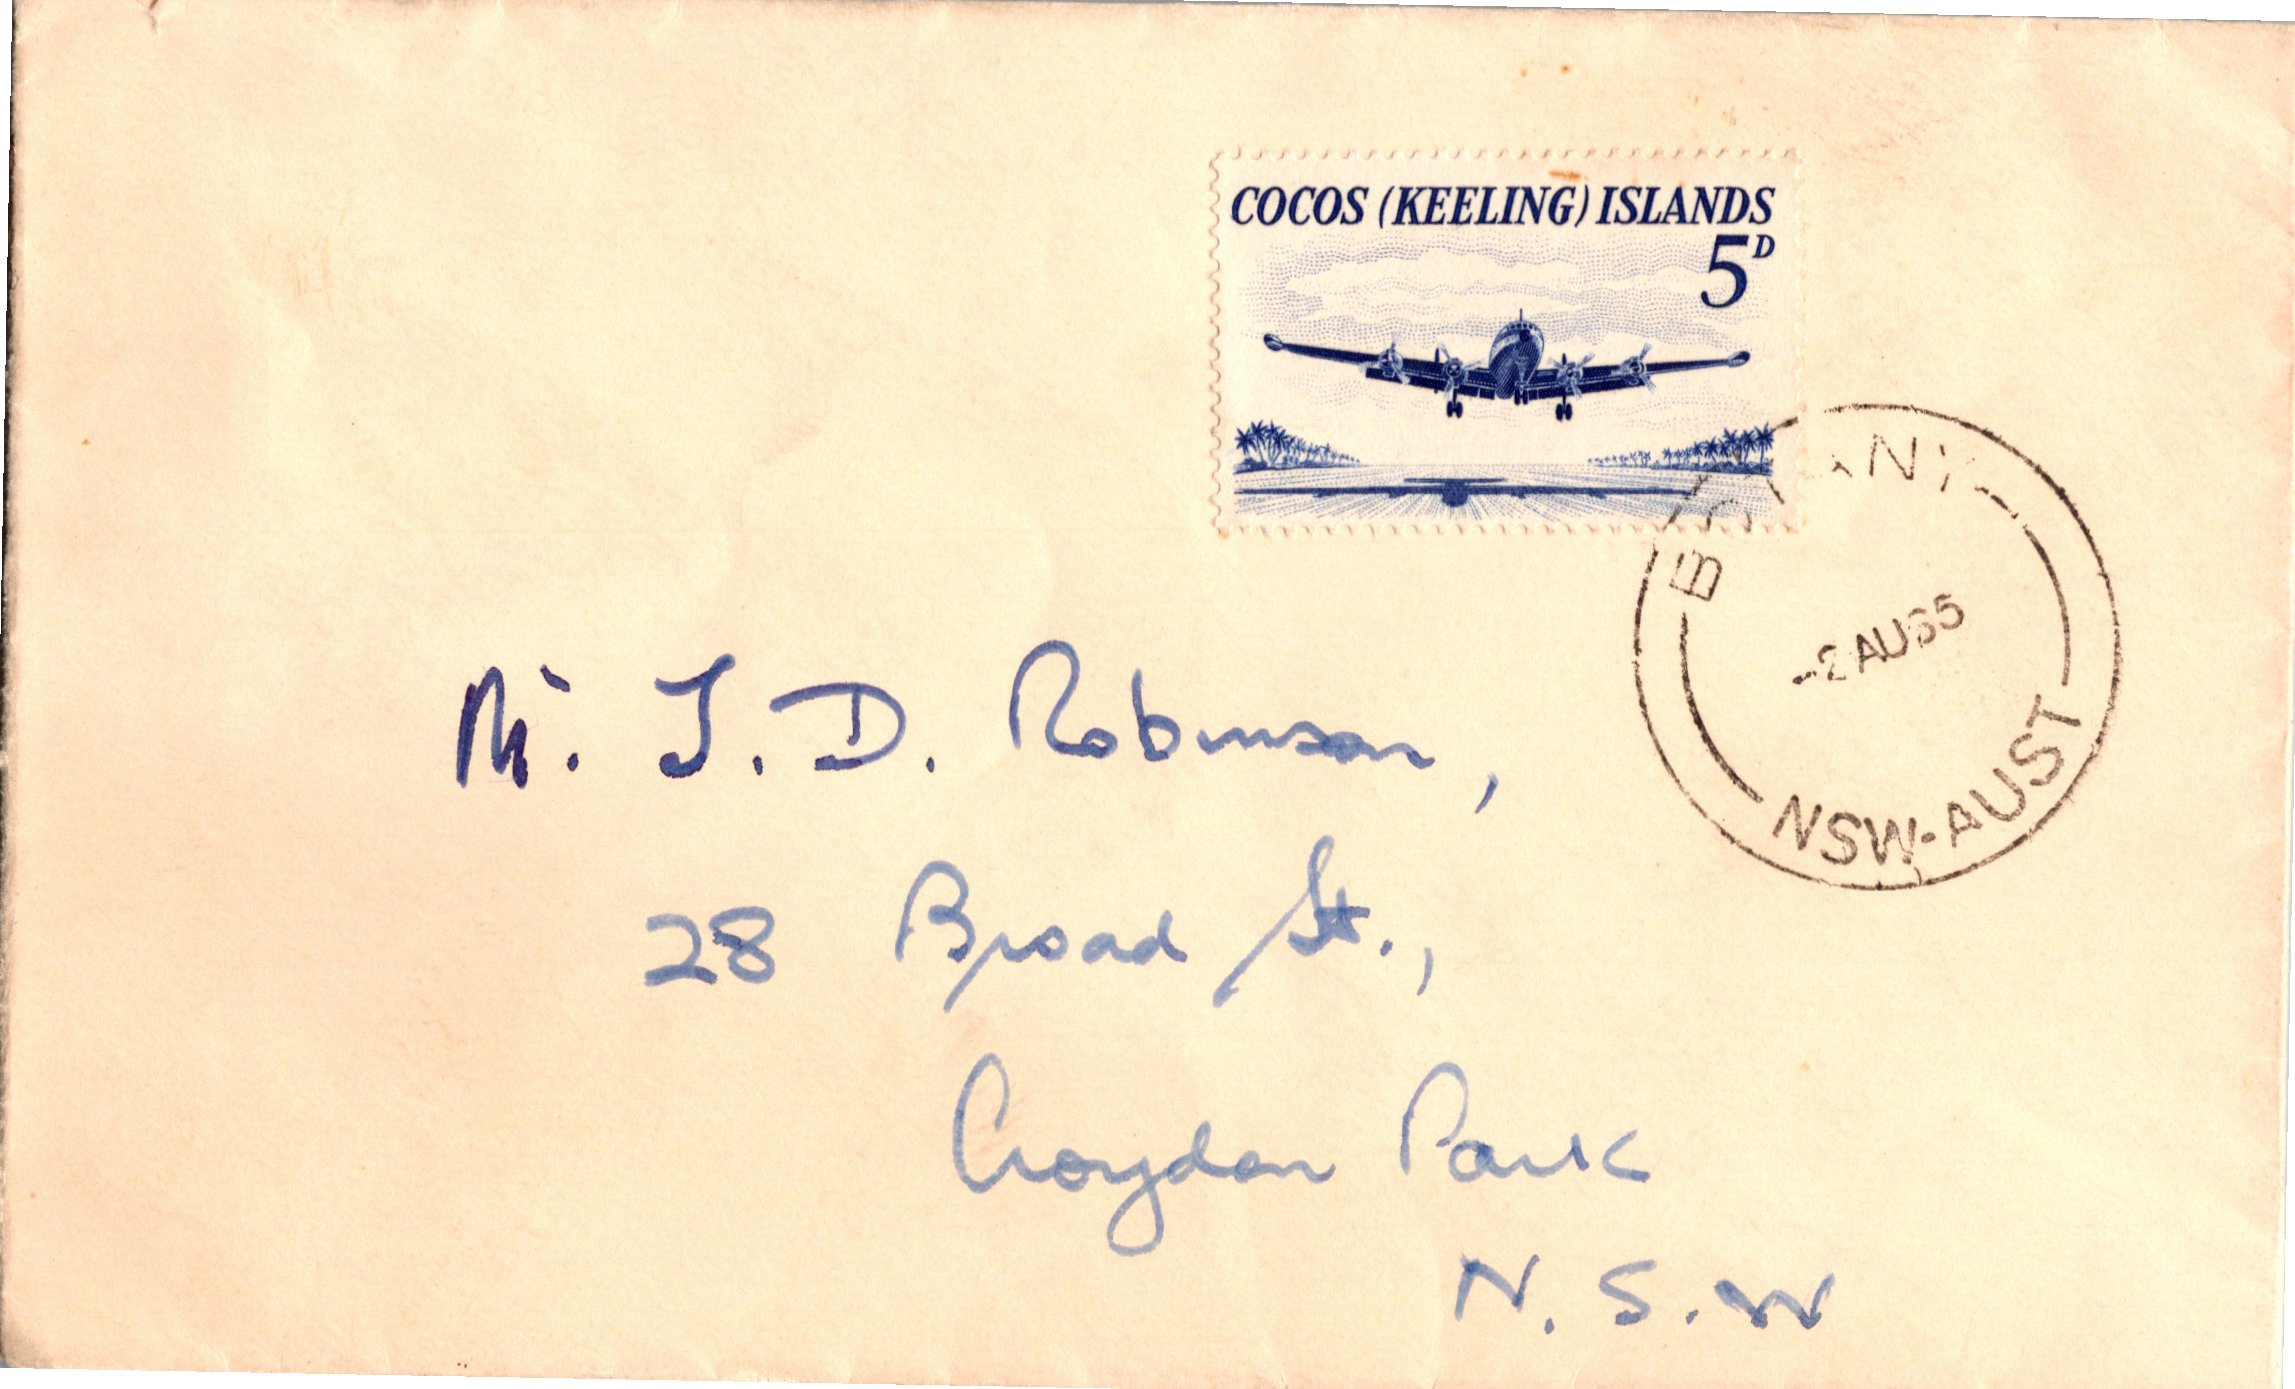 COCOS (KEELING) ISLANDS
5D
BOTANY
-2 AU65
NSW-AUST
Mr. J. D. Robinson,
28 Broad St.,
Croydon Park
N. S. W